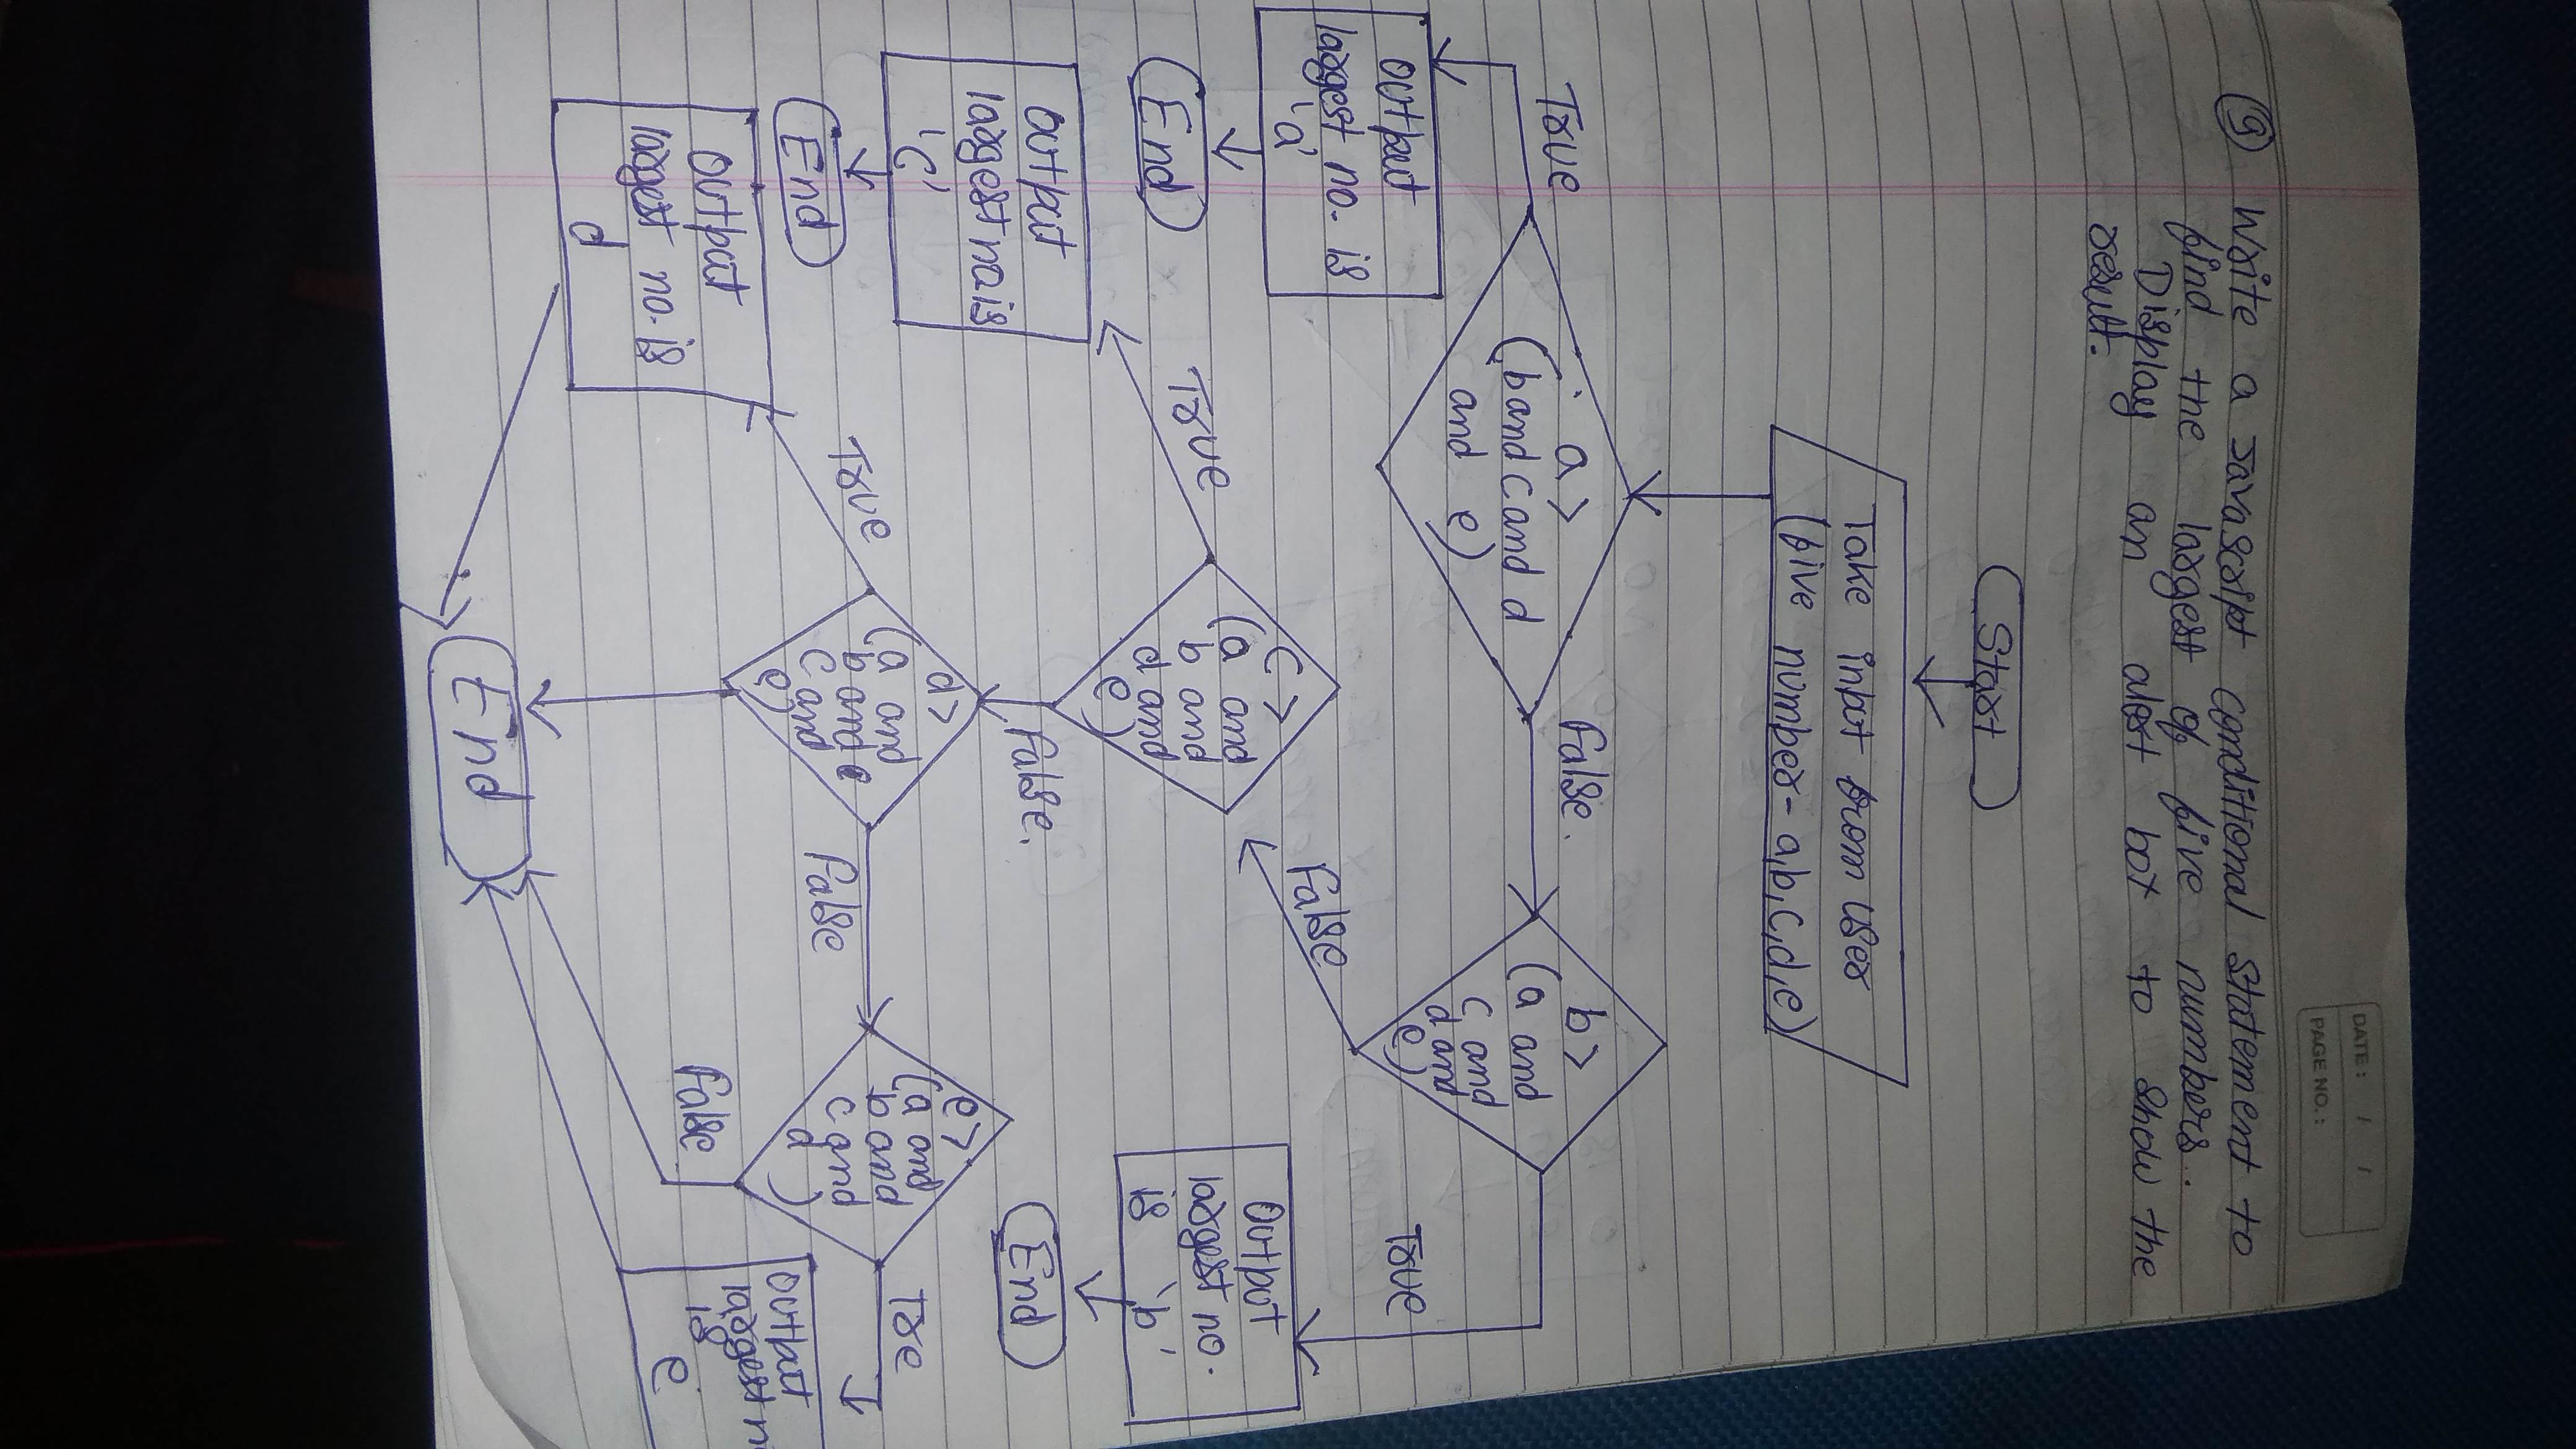 DATE: / /
PAGE NO.:
9 Write a Javascript Conditional Statement to
find the largest of five numbers.
Display an alert box to show the
result.
Start
Take input from user
(five number - a,b,c,d,e)
a>
(b and c and d
and e)
True
False.
Output
largest no. is
'a'
End
b>
(a and
c and
d and
e)
False
True
Output
largest no.
is 'b'
End
c>
(a and
b and
d and
e)
True
False.
Output
largest no is
'c'
End
d>
(a and
b and
c and
e)
True
False
Output
largest no. is
d
e>
(a and
b and
c and
d)
True
False
Output
largest n
is
e
End